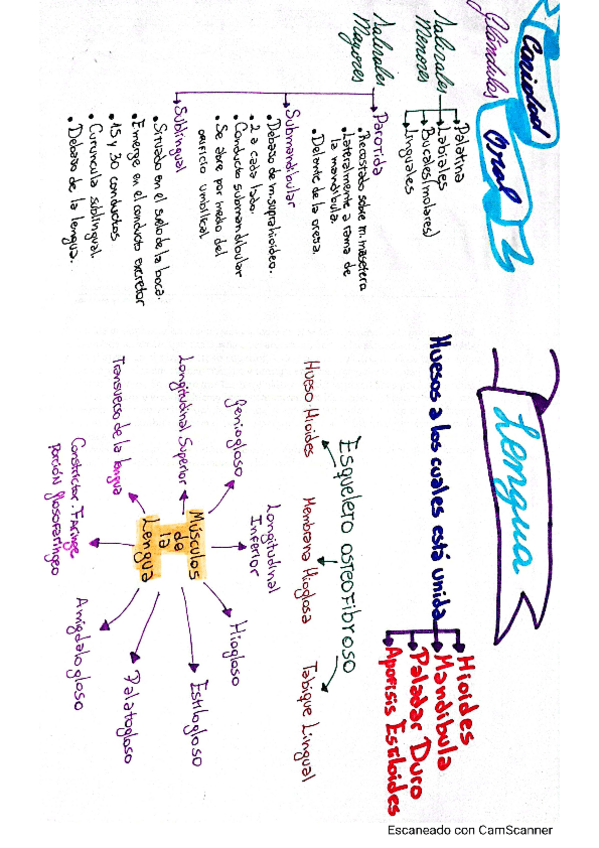 Cavidad Oral 2
Glándulas
Naturales Menores
Palatina
Labiales
Bucales (molares)
Linguales
Naturales Mayores
Parotida
• Recostado sobre m. masetero
• Lateralmente a rama de
la mandibula.
• Delante de la oreja.
Submandibular
• Debajo de m. suprahioideo.
• 2 a cada lado.
• Conducto submandibular
• Se abre por medio del
orificio umbilical
Sublingual
• Situado en el suelo de la boca.
• Emerge en el conducto excretor
• 15 y 30 conductos
• Curuncula sublingual.
• Debajo de la lengua.
Lengua
Huesos a los cuales está unida
Hioides
Mandibula
Paladar Duro
Apofisis Estiloides
Esqueleto osteofibroso
Hueso Hioides
Membrana Hioglosa
Tabique Lingual
Músculos
de
la
Lengua
Geniogloso
Longitudinal
Inferior
Hiogloso
Longitudinal Superior
Estilogloso
Transverso de la lengua
Palatogloso
Constrictor Faringe
porción glosofaríngeo
Amigdalogloso
Escaneado con CamScanner